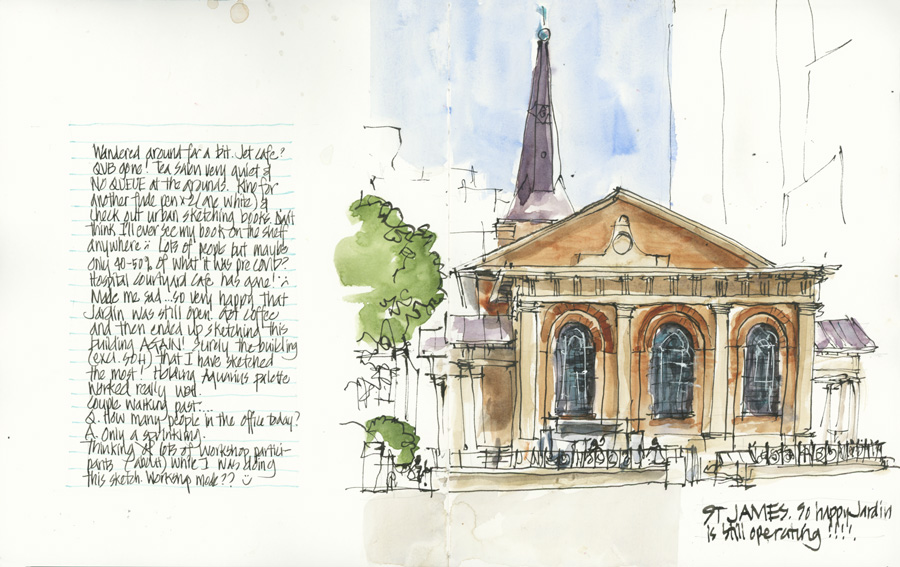 Wandered around for a bit. Jet cafe?
QVB gone! Tea salon very quiet &
NO QUEUE at the grounds. Kino for
another fude pen x2 (one white) &
check out urban sketching books. Don't
think I'll ever see my book on the shelf
anywhere :( Lots of people but maybe
only 40-50% of what it was pre covid?
Hospital courtyard cafe has gone! :(
Made me sad... so very happy that
Jardin was still open! Got coffee
and then ended up sketching this
building AGAIN! Surely the building
(excl. SOH) that I have sketched
the most! Holding Aquarius palette
worked really well.
Couple walking past...
Q. How many people in the office today?
A. Only a sprinkling.
Thinking of lots of workshop partici-
pants (about) while I was doing
this sketch. Workshop mode?? :)
ST JAMES. So happy Jardin
is still operating!!!!